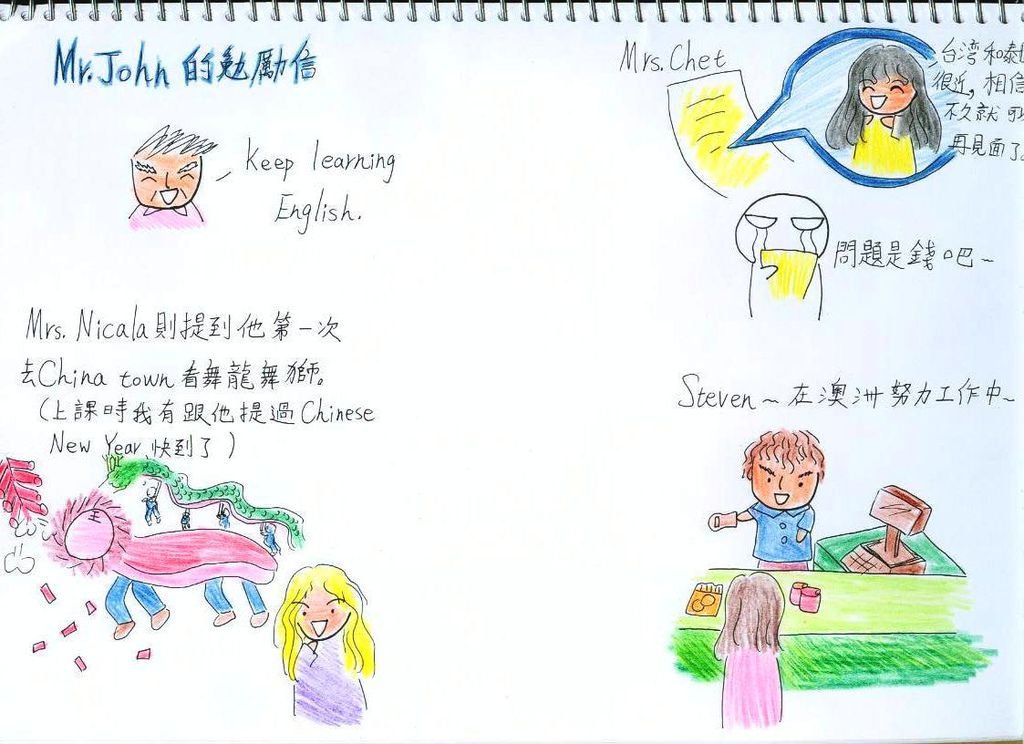 Mr. John 的勉勵信
Keep learning
English.
Mrs. Chet
台湾和泰
很近, 相信
不久就可
再見面了。
問題是錢吧~
Mrs. Nicala則提到他第一次
去China town看舞龍舞獅。
(上課時我有跟他提過Chinese
New Year 快到了)
Steven~在澳洲努力工作中~